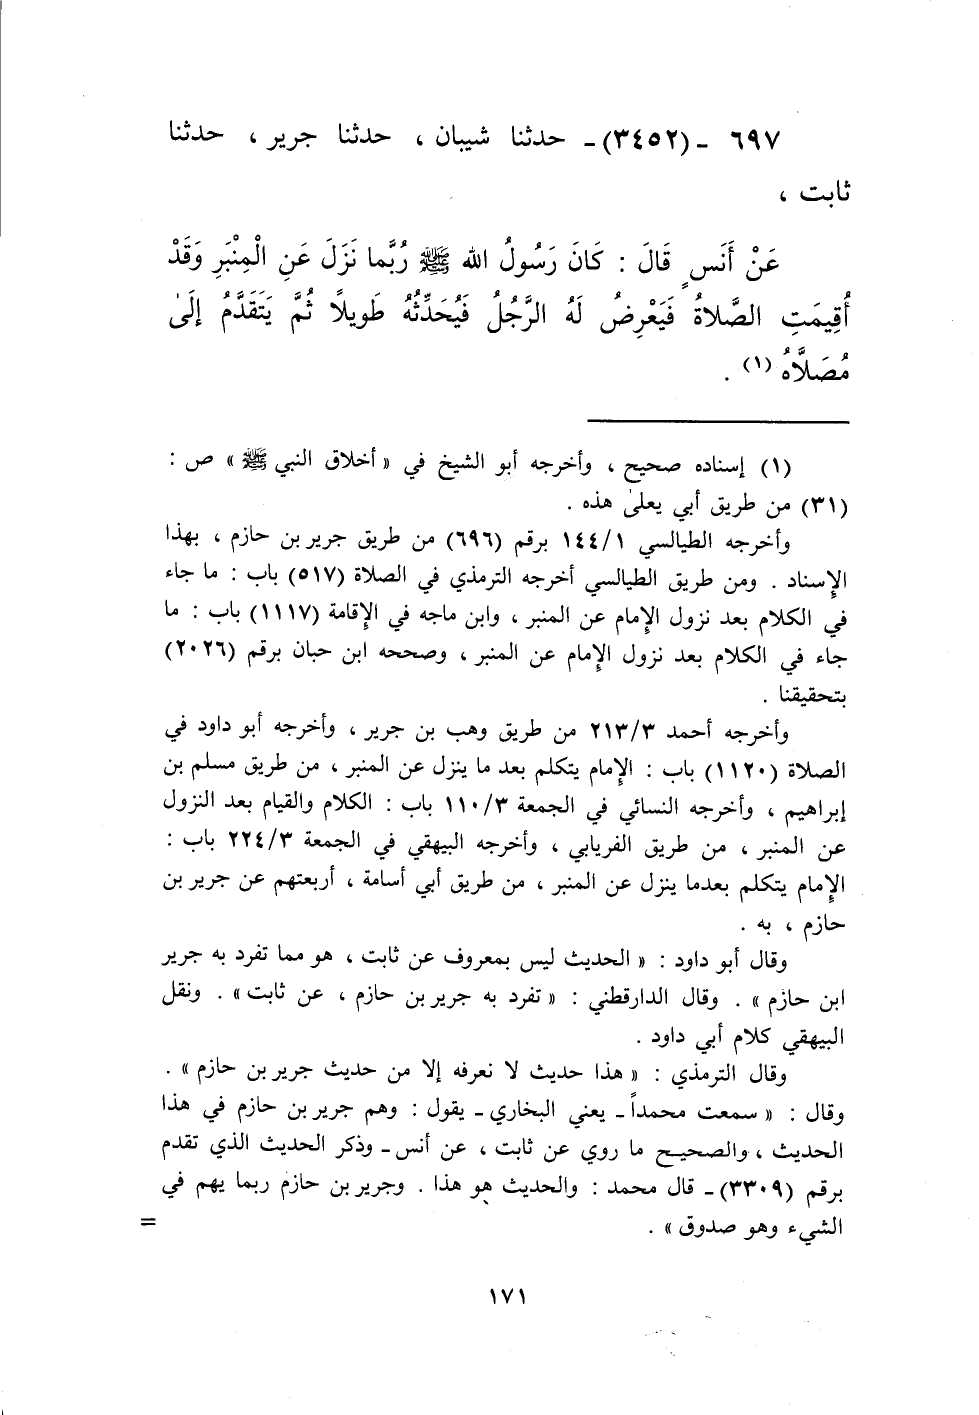 ٦٩٧ ـ (٣٤٥٢) ـ حدثنا شيبان ، حدثنا جرير ، حدثنا
ثابت ،
عَنْ أَنَسٍ قَالَ : كَانَ رَسُولُ الله ﷺ رُبَّما نَزَلَ عَنِ الْمِنْبَرِ وَقَدْ
أُقِيمَتِ الصَّلاةُ فَيَعْرِضُ لَهُ الرَّجُلُ فَيُحَدِّثُهُ طَوِيلاً ثُمَّ يَتَقَدَّمُ إلَىٰ
مُصَلَّاهُ (١) .
(١) إسناده صحيح ، وأخرجه أبو الشيخ في « أخلاق النبي ﷺ » ص :
(٣١) من طريق أبي يعلىٰ هذه .
وأخرجه الطيالسي ١٤٤/١ برقم (٦٩٦) من طريق جرير بن حازم ، بهذا
الإسناد . ومن طريق الطيالسي أخرجه الترمذي في الصلاة (٥١٧) باب : ما جاء
في الكلام بعد نزول الإمام عن المنبر ، وابن ماجه في الإقامة (١١١٧) باب : ما
جاء في الكلام بعد نزول الإمام عن المنبر ، وصححه ابن حبان برقم (٢٠٢٦)
بتحقيقنا .
وأخرجه أحمد ٢١٣/٣ من طريق وهب بن جرير ، وأخرجه أبو داود في
الصلاة (١١٢٠) باب : الإمام يتكلم بعد ما ينزل عن المنبر ، من طريق مسلم بن
إبراهيم ، وأخرجه النسائي في الجمعة ١١٠/٣ باب : الكلام والقيام بعد النزول
عن المنبر ، من طريق الفريابي ، وأخرجه البيهقي في الجمعة ٢٢٤/٣ باب :
الإمام يتكلم بعدما ينزل عن المنبر ، من طريق أبي أسامة ، أربعتهم عن جرير بن
حازم ، به .
وقال أبو داود : « الحديث ليس بمعروف عن ثابت ، هو مما تفرد به جرير
ابن حازم » . وقال الدارقطني : « تفرد به جرير بن حازم ، عن ثابت » . ونقل
البيهقي كلام أبي داود .
وقال الترمذي : « هذا حديث لا نعرفه إلا من حديث جرير بن حازم » .
وقال : « سمعت محمداً ـ يعني البخاري ـ يقول : وهم جرير بن حازم في هذا
الحديث ، والصحيح ما روي عن ثابت ، عن أنس ـ وذكر الحديث الذي تقدم
برقم (٣٣٠٩) ـ قال محمد : والحديث هو هذا . وجرير بن حازم ربما يهم في
الشيء وهو صدوق » .
=
١٧١